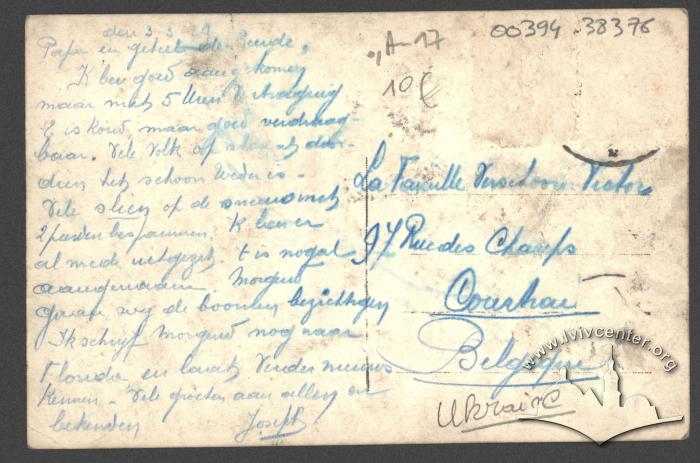 den 3.3.29
Papa en geheel de Bende,
K ben goed aangekomen
maar met 5 Uren Vertraging
t is koud maar goed verdraag-
baar. Vele Volk op straat door-
dien het schoon Weder is.
Vele slien op de sneeuw met
2 peerden bespannen. K ben er
al mede uitgezet. t is nogal
aangenaam Morgend
gaan wij de boomen bezichtigen
Ik schrijf Morgend nog naar
Florida en laat Verder nieuws
kennen - Vele groeten aan allen en
bekenden Joseph
00394 38376
A-17
10
La Famille Victor
97 Rue des Champs
Courtrai
Belgique
Ukraine
www.lvivcenter.org